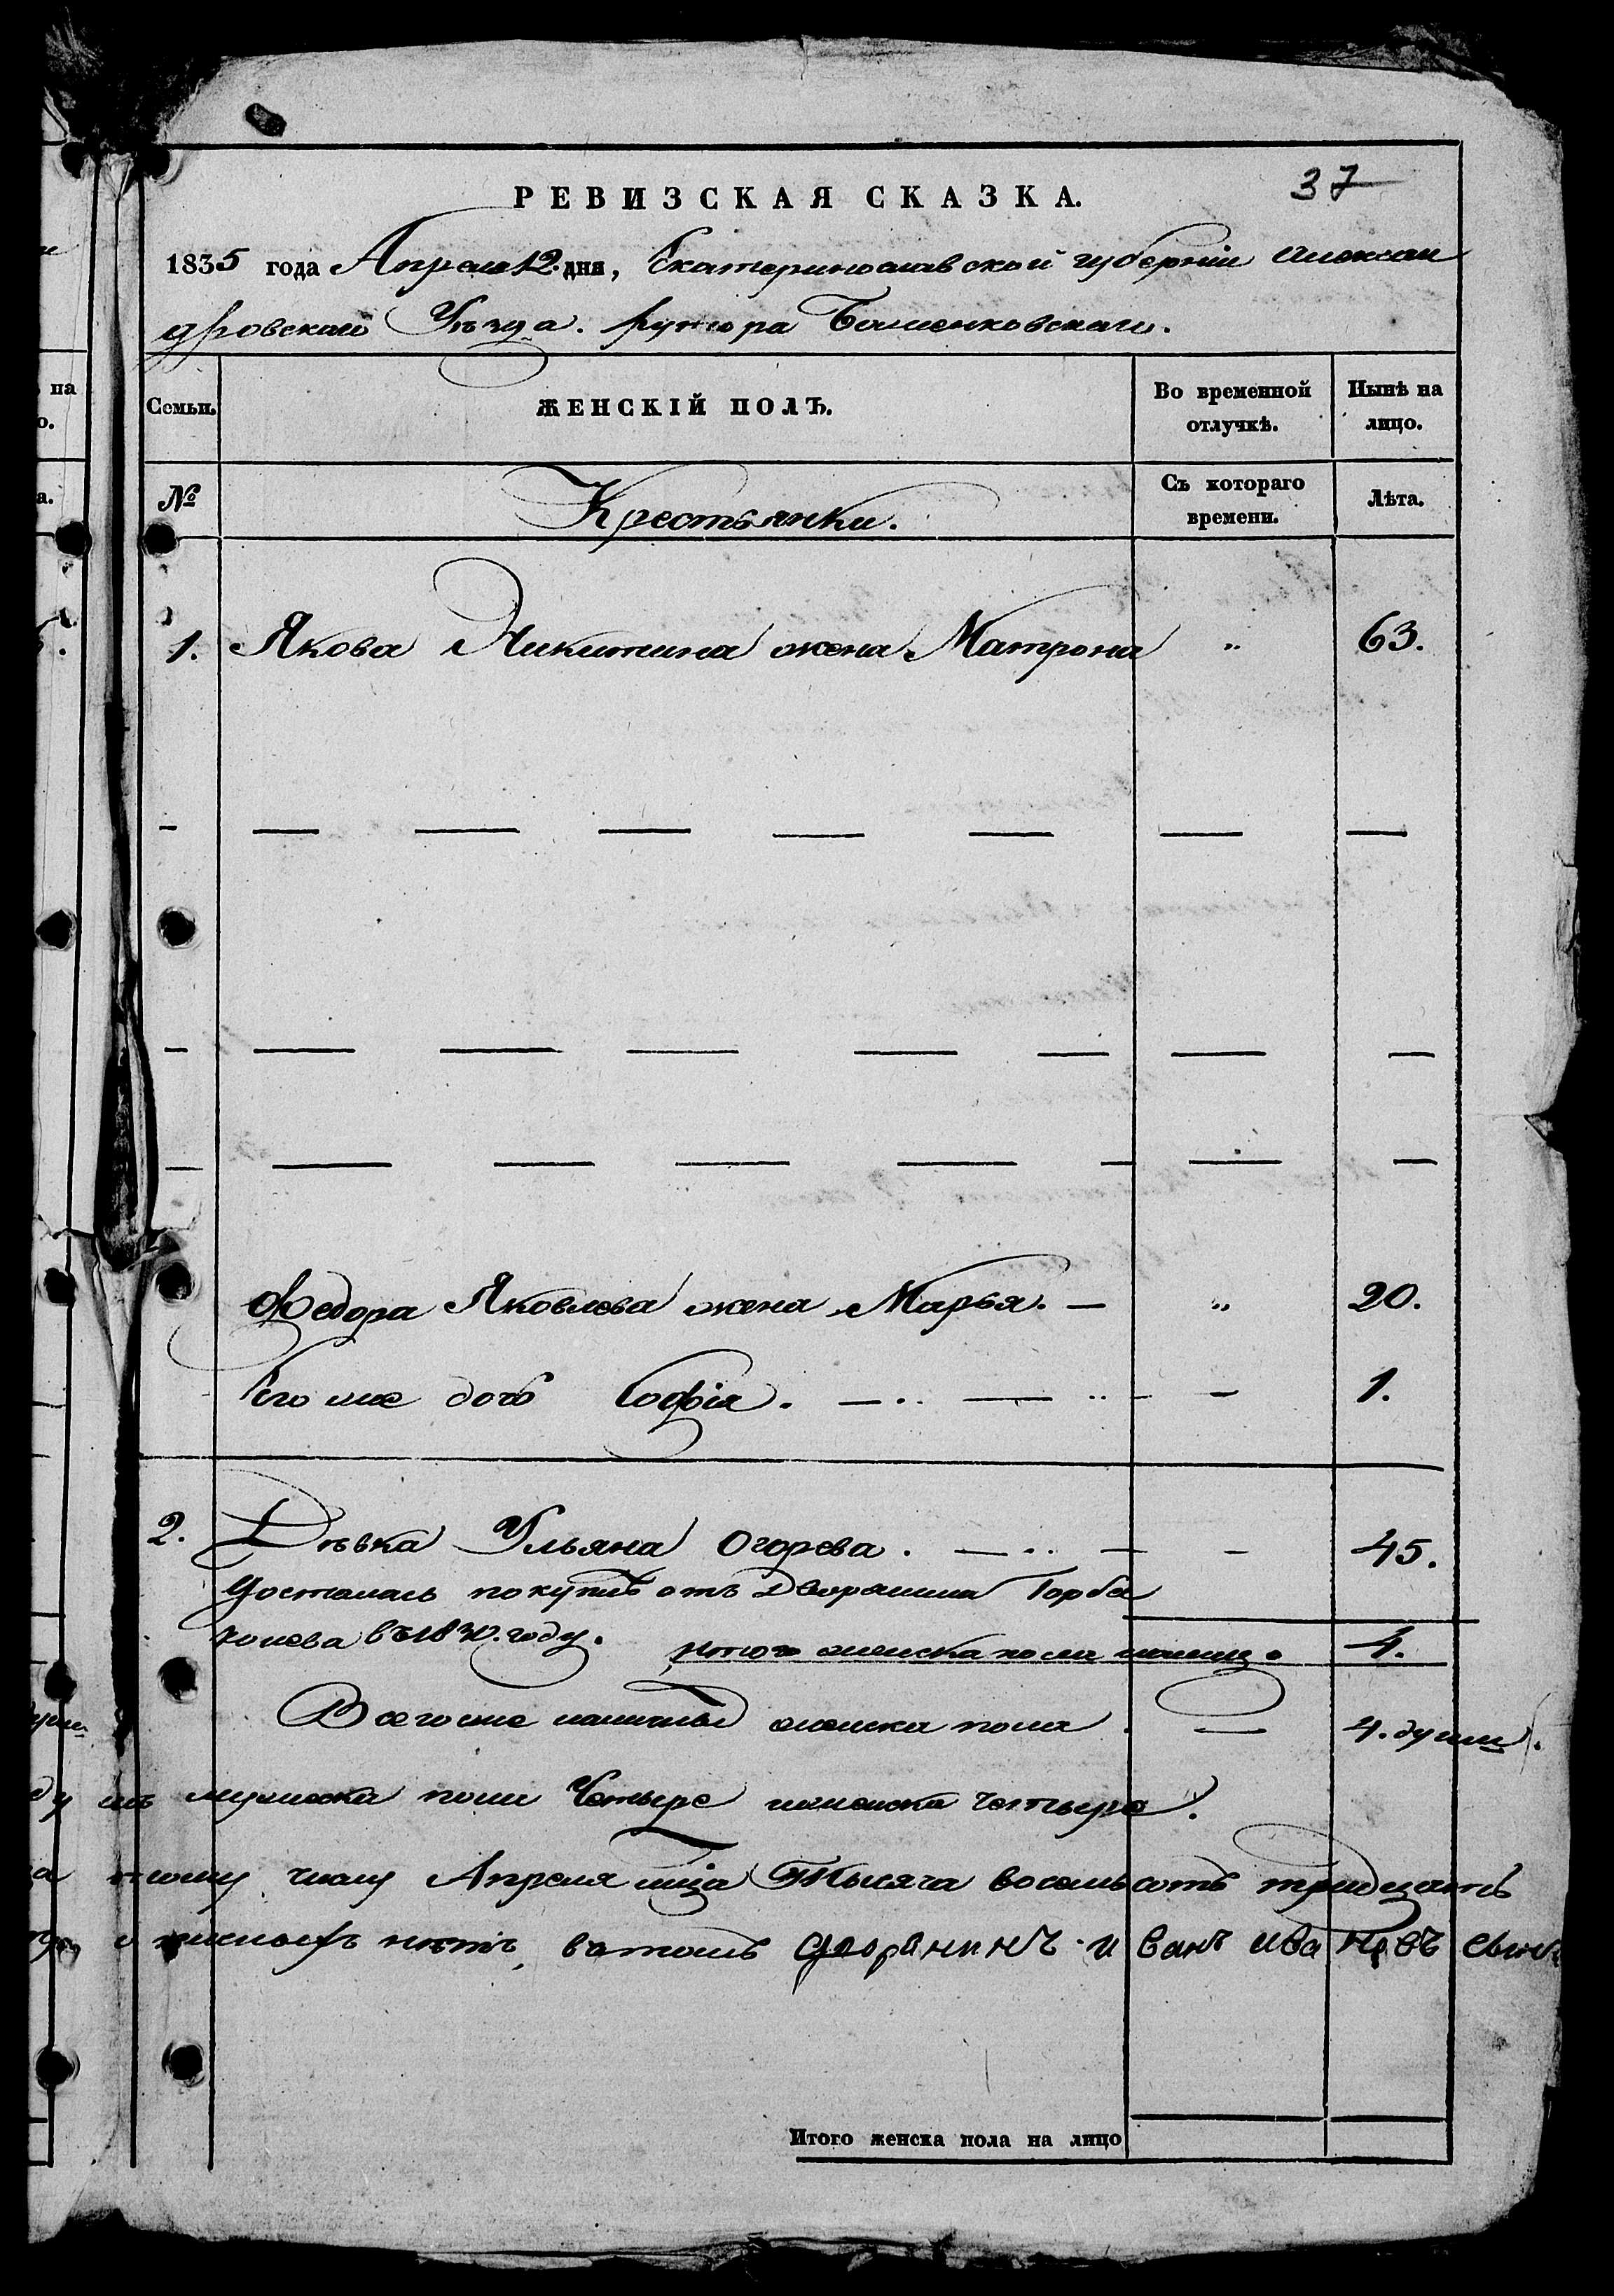 37
РЕВИЗСКАЯ СКАЗКА.
1835 года Апреля 12. дня, Екатеринославской губерніи Алексан
дровскаго Уѣзда. хутора
Семьи.
ЖЕНСКІЙ ПОЛЪ.
Во временной отлучкѣ.
Нынѣ на лицо.
№
Крестьянки.
Съ котораго времени.
Лѣта.
1. Якова Никитина жена Матрона " 63.
Федора Яковлева жена Марья. — " 20.
Его же дочь Софія. — 1.
2. Дѣвка Ульяна Огорева. — 45.
Досталась покупкѣ отъ Дворянина Горба
конева въ 1830. году.
Итого женска пола налицо. 4.
Всего же налицо женска пола. — 4. души.
мужеска пола Четыре женска четыре.
числу Апреля мца Тысяча восемьсотъ тридцать
нѣтъ, въ томъ дворанинъ иванъ ивановъ сынъ
Итого женска пола на лицо